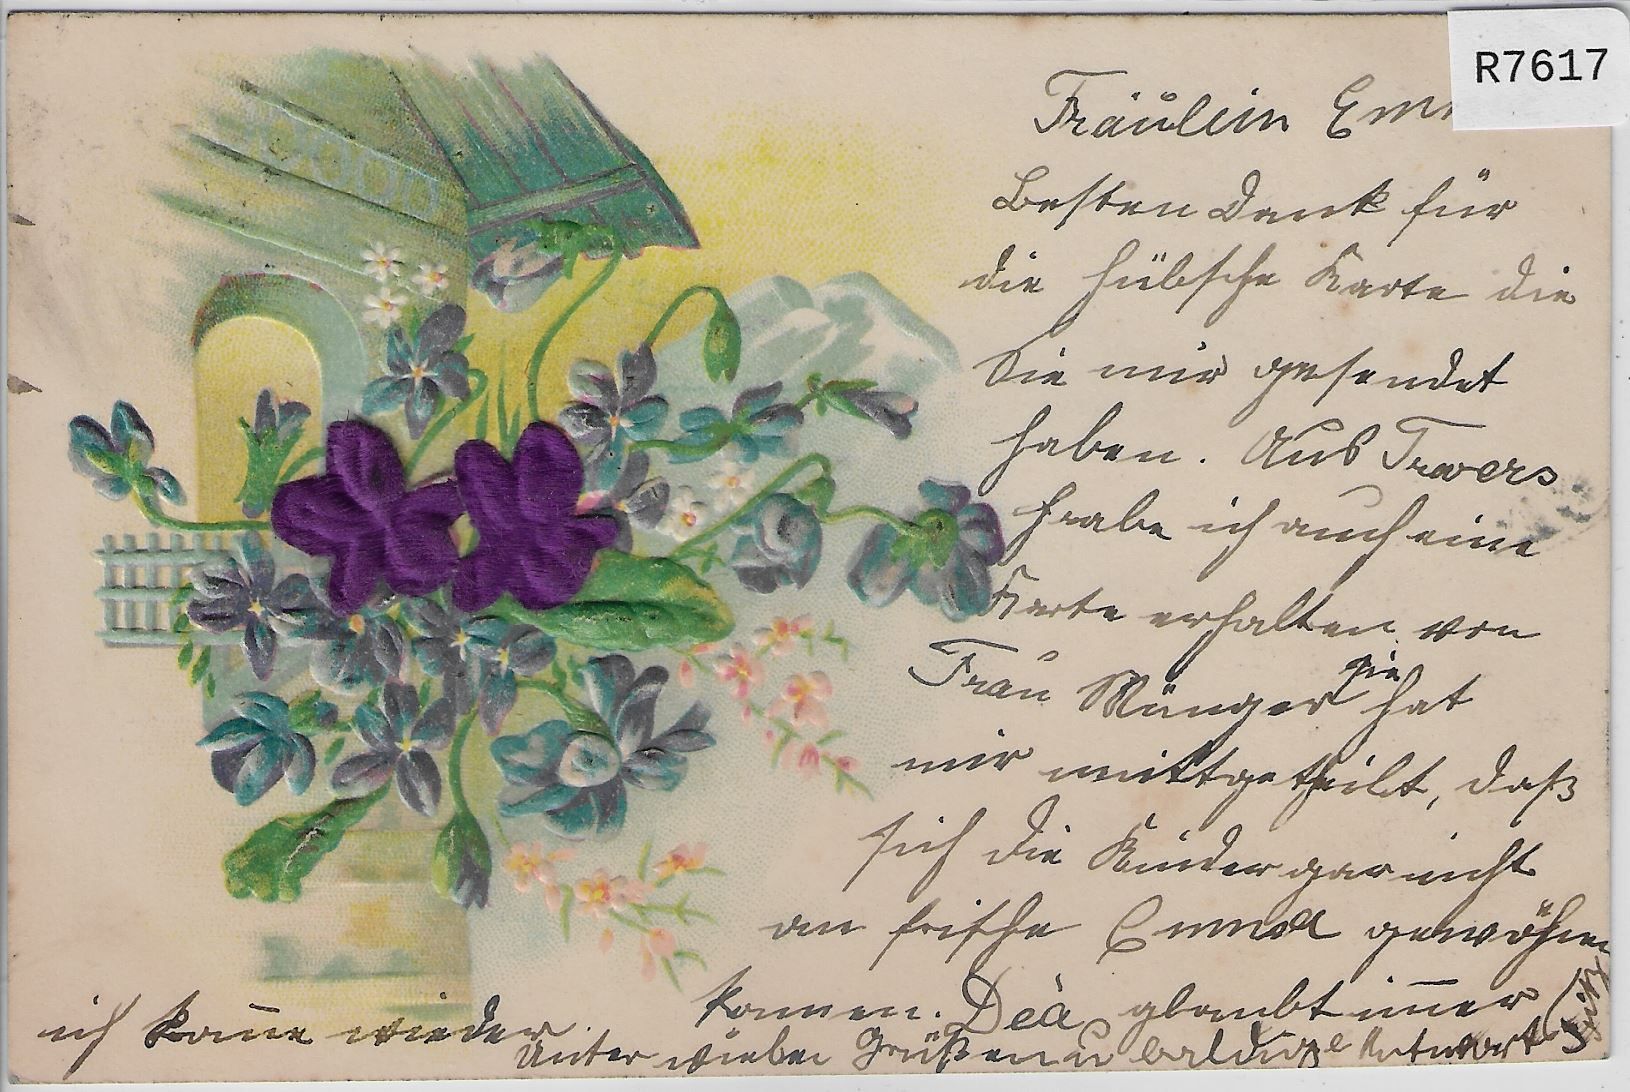 R7617
Fräulein Em
Besten Dank für
die hübsche Karte die
Sie mir gesendet
haben. Aus Travers
habe ich auch eine
Karte erhalten von
Frau Münger sie hat
mir mittgetheilt, daß
sich die Kinder gar nicht
an frische Emma gewöhnen
können. Déa glaubt im̅er
ich kom̅e wieder.
Unter vielen Grüßen u baldige Antwort